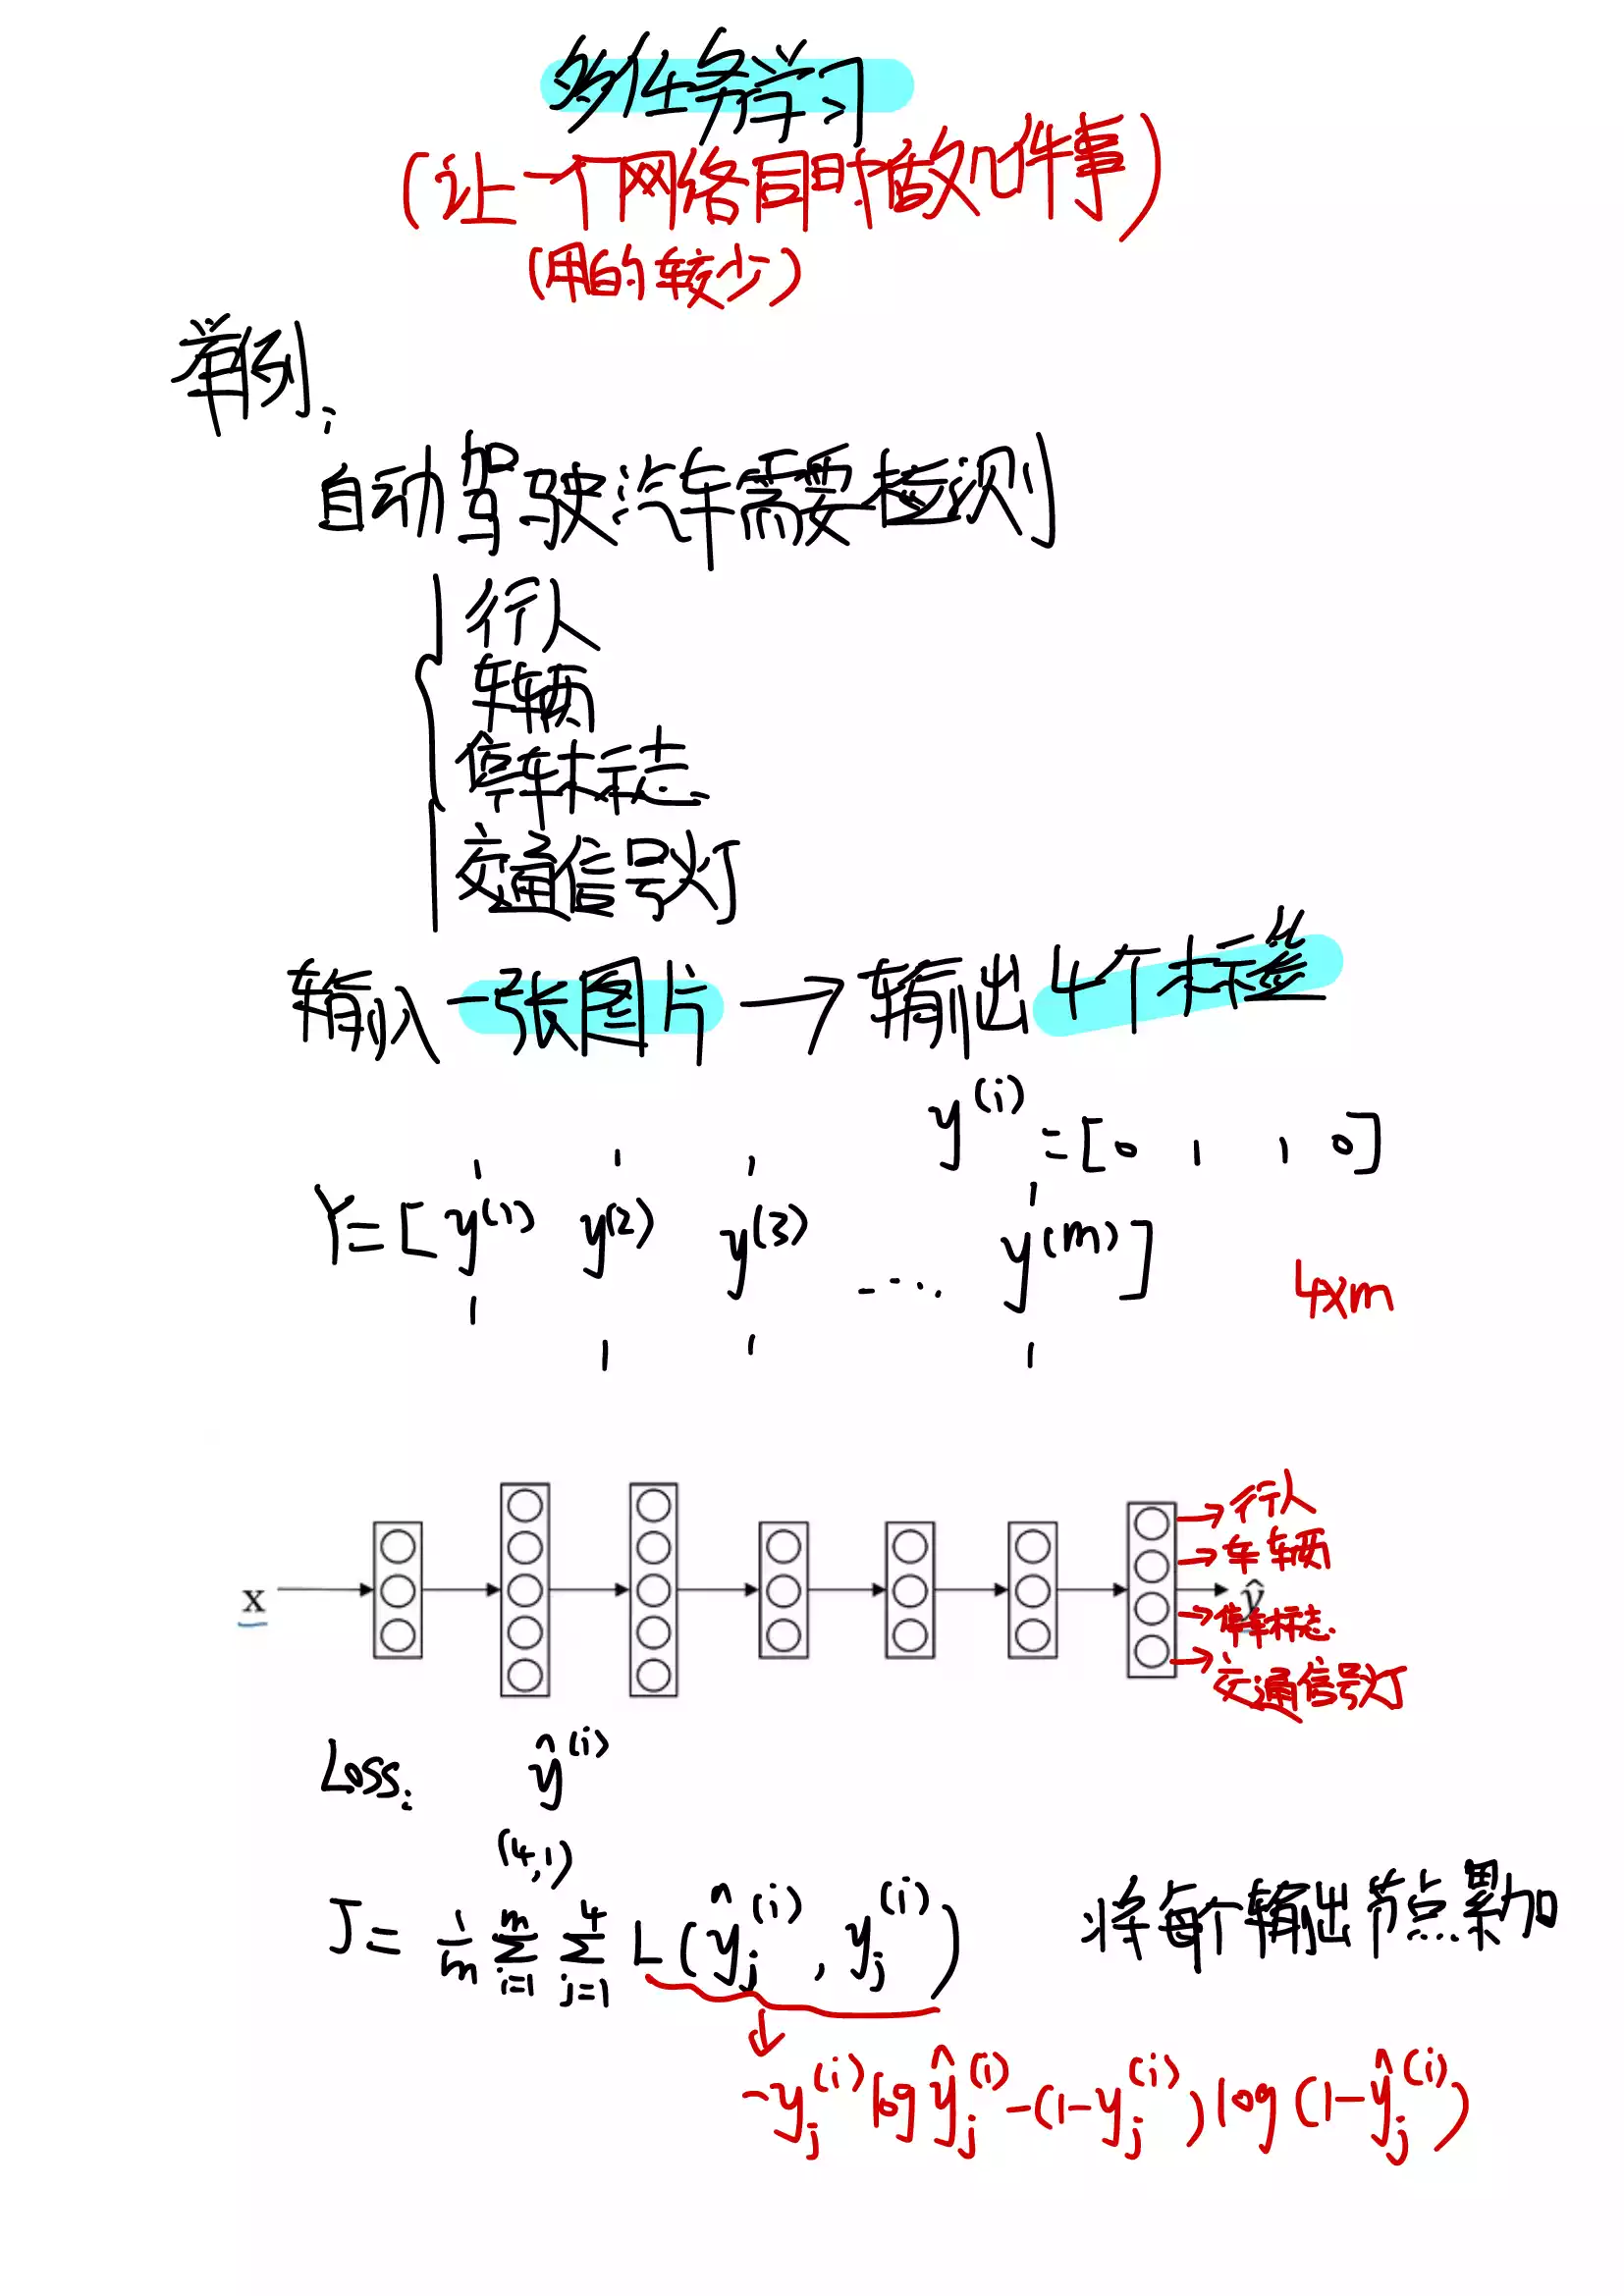 多任务学习
(让一个网络同时做几件事)
(用的较少)
举例:
自动驾驶汽车需要检测
行人
车辆
停车标志
交通信号灯
输入一张图片→输出4个标签
y^(i) = [0 1 1 0]
Y = [y^(1) y^(2) y^(3) .... y^(m)]
4×m
x
ŷ
→行人
→车辆
→停车标志
→交通信号灯
Loss: ŷ^(i)
(4,1)
J = 1/m Σ_{i=1}^{m} Σ_{j=1}^{4} L(ŷ_j^(i), y_j^(i)) 将每个输出节点累加
-y_j^(i) log ŷ_j^(i) - (1-y_j^(i)) log(1-ŷ_j^(i))